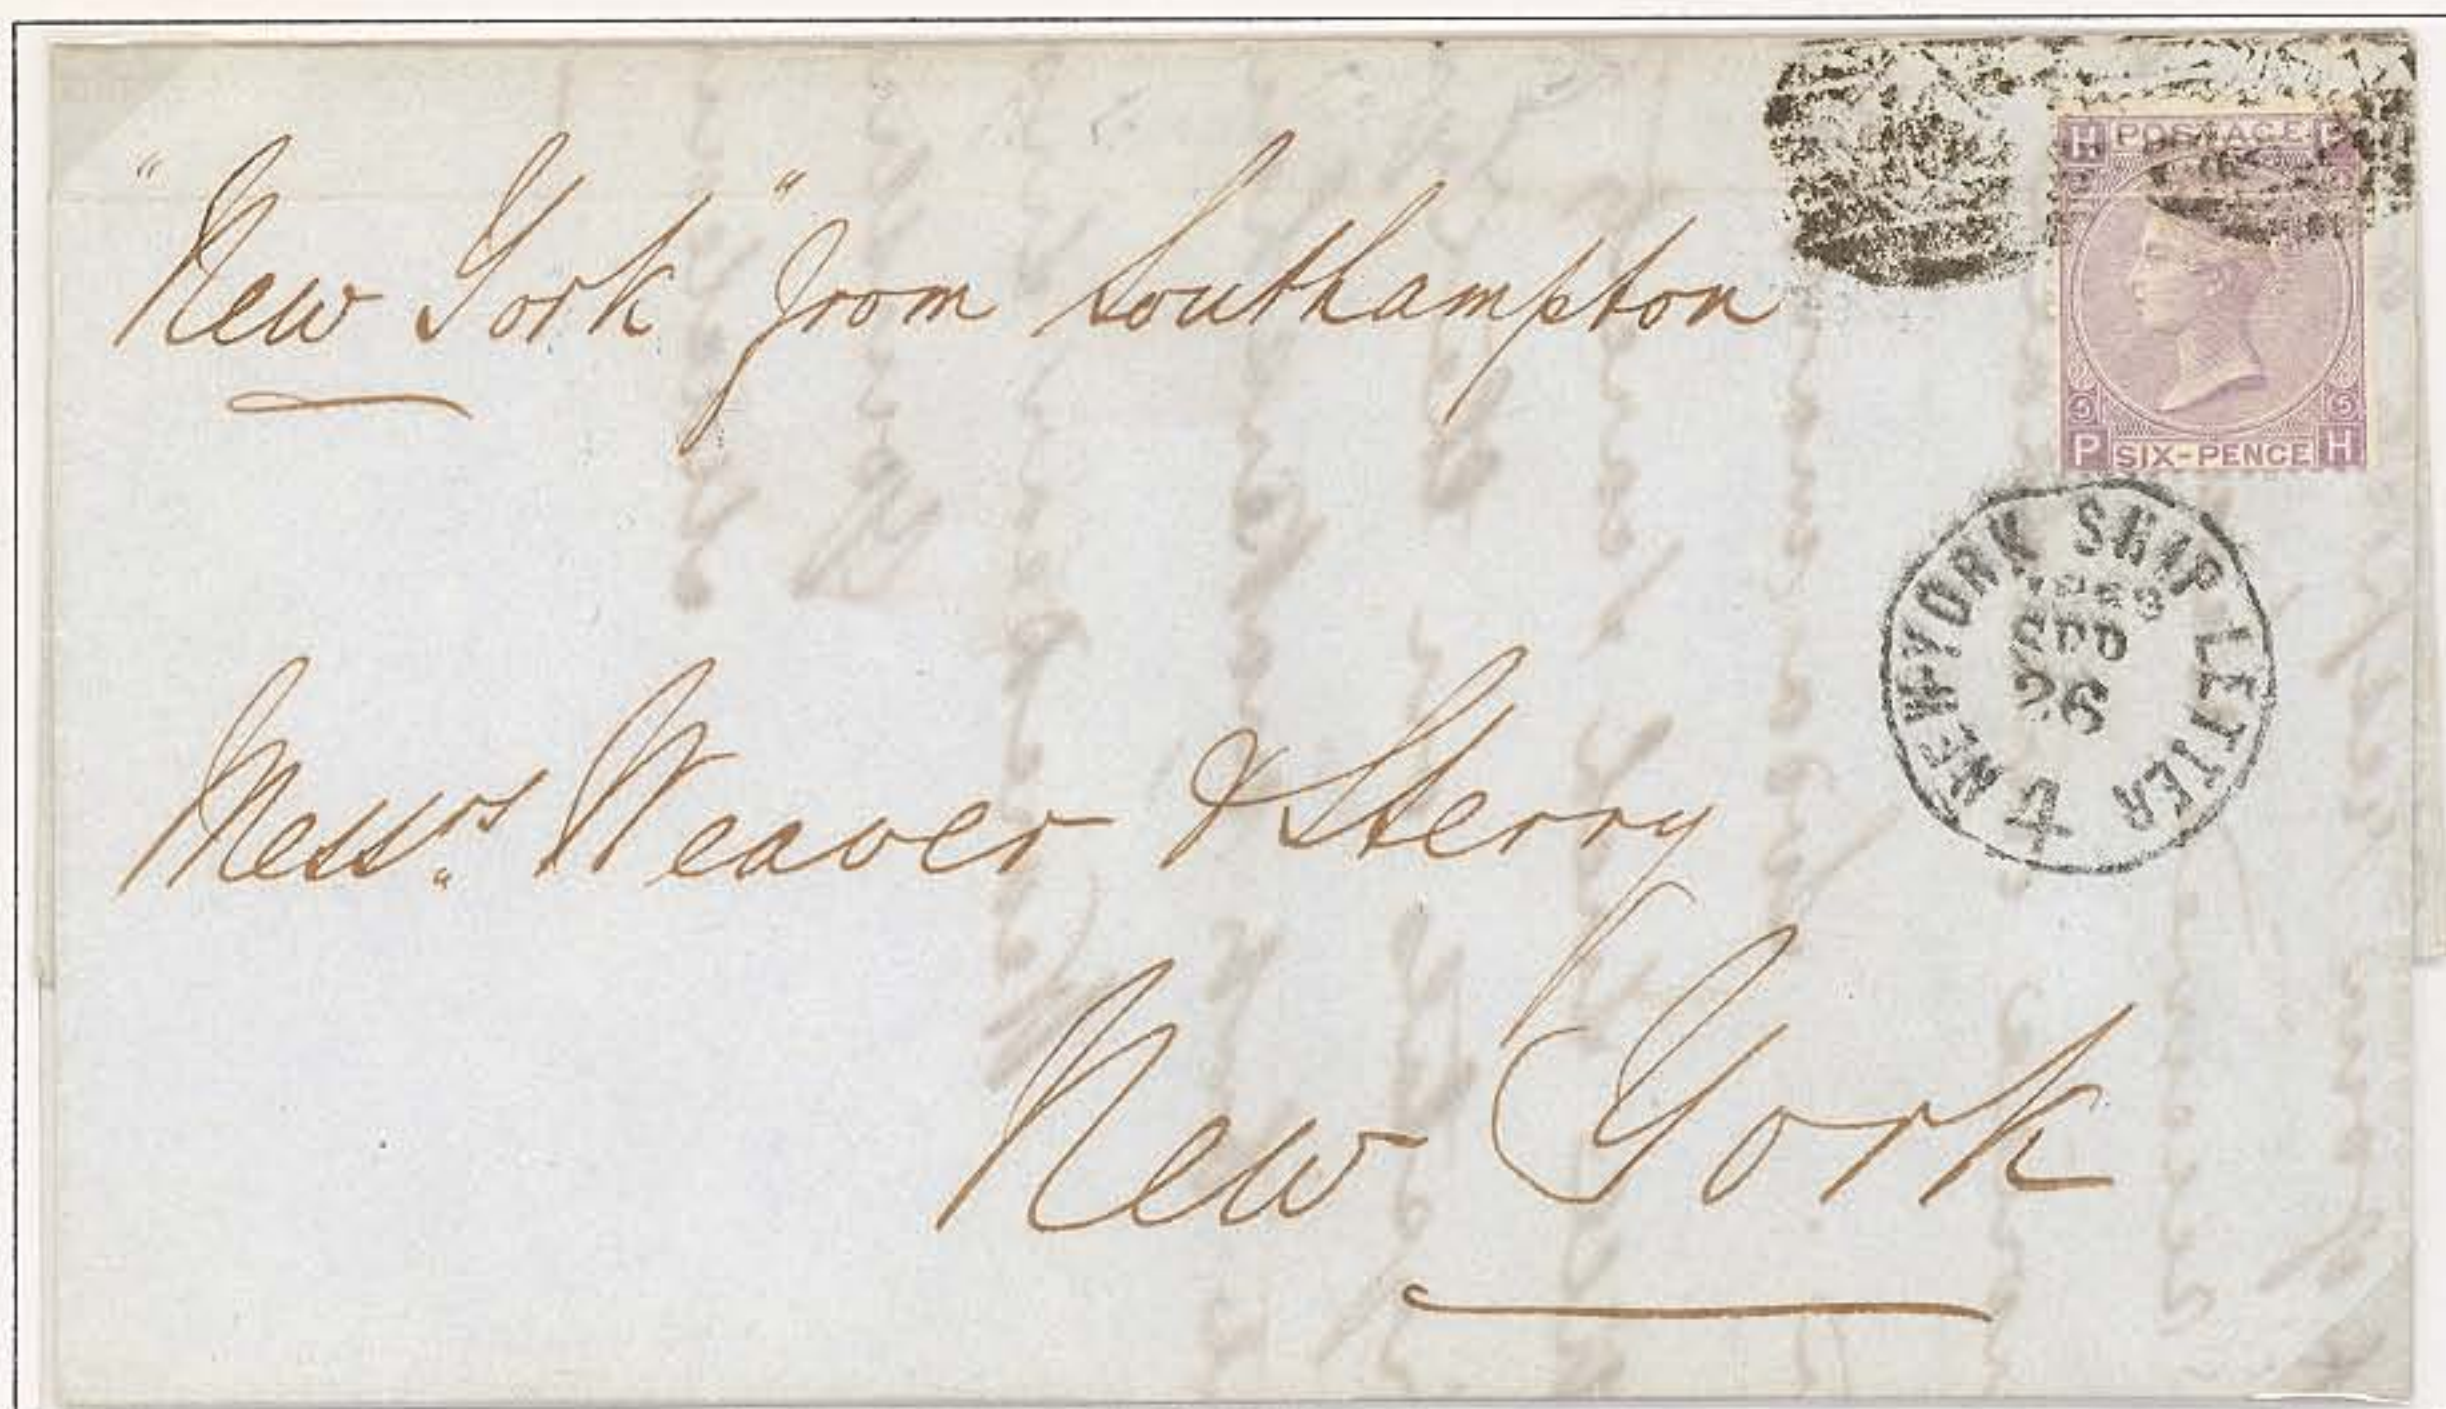 "New York" from Southampton
H POSTAGE P
5 5
P SIX-PENCE H
NEW-YORK SHIP LETTER
SEP
26
4
Messrs. Weaver & Sterry
New York